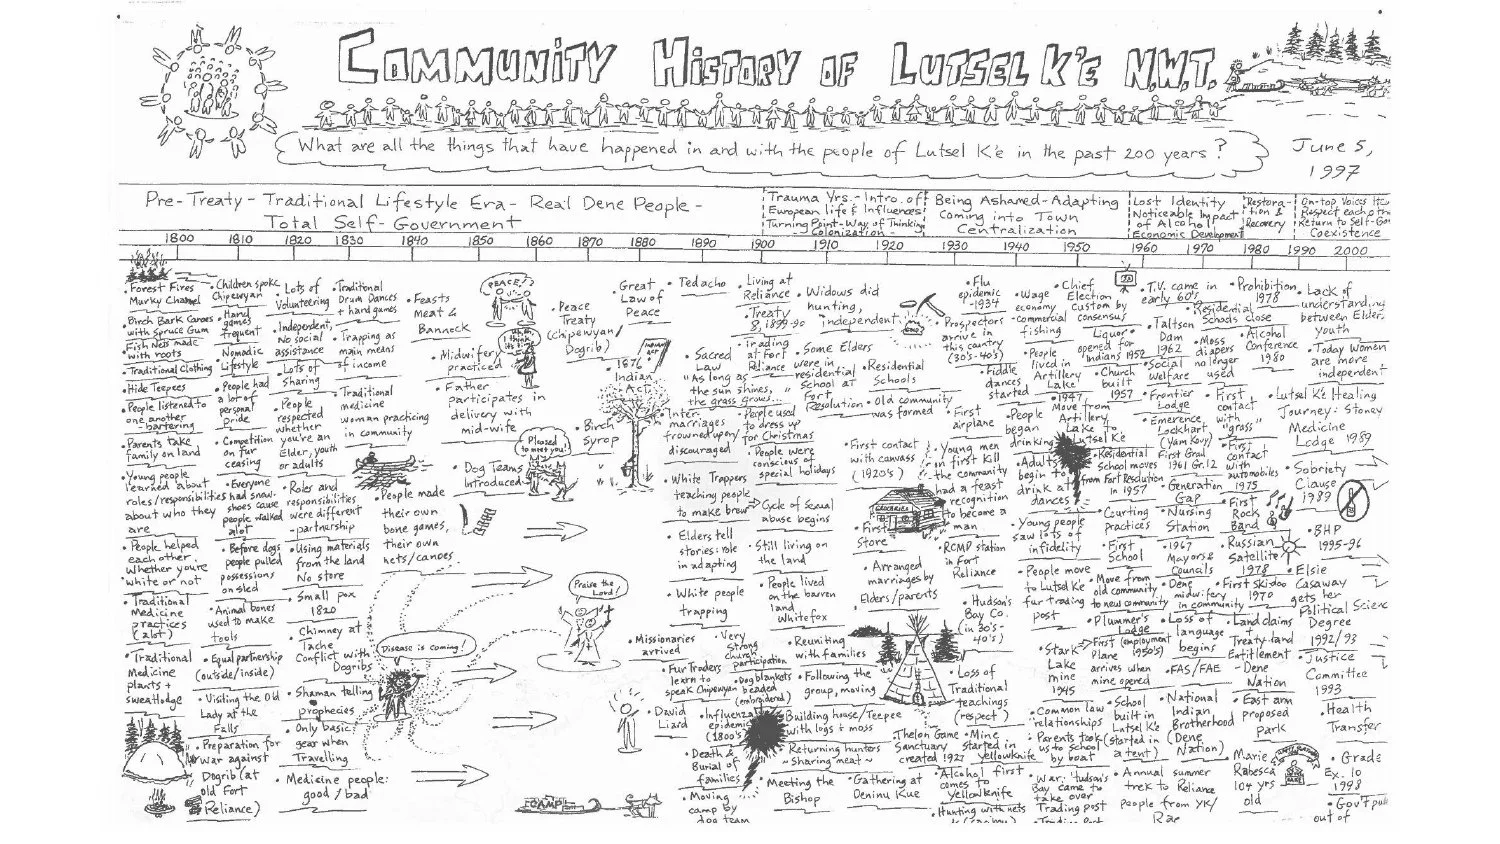 COMMUNITY HISTORY OF LUTSEL K'E N.W.T.
What are all the things that have happened in and with the people of Lutsel K'e in the past 200 years?
June 5,
1997
Pre-Treaty - Traditional Lifestyle Era - Real Dene People -
Total Self-Government
Trauma Yrs. - Intro. of
European life & Influences
Turning Point - Way of Thinking
Colonization
Being Ashamed - Adapting
Coming into Town
Centralization
Lost Identity
Noticeable Impact
of Alcohol
Economic Development
Restora-
tion &
Recovery
On-top Voices
Respect each
Return to Self-
Coexistence
1800 1810 1820 1830 1840 1850 1860 1870 1880 1890 1900 1910 1920 1930 1940 1950 1960 1970 1980 1990 2000
• Forest Fires
Murky Channel
• Birch Bark Canoes
with Spruce Gum
• Fish Nets made
with roots
• Traditional Clothing
• Hide Teepees
• People listened to
one another
- bartering
• Parents take
family on land
• Young people
learned about
roles/responsibilities
about who they
are
• People helped
each other
whether you're
"white or not
• Traditional
Medicine
practices
(alot)
• Traditional
Medicine
plants +
sweatlodge
• Children spoke
Chipewyan
• Hand
games
frequent
• Nomadic
Lifestyle
• People had
a lot of
personal
pride
• Competition
on fur
ceasing
• Everyone
had snow-
shoes cause
people walked
alot
• Before dogs
people pulled
possessions
on sled
• Animal bones
used to make
tools
• Equal partnership
(outside/inside)
• Visiting the Old
Lady at the
Falls
• Preparation for
war against
Dogrib (at
old Fort
Reliance)
• Lots of
Volunteering
• Independent,
No social
assistance
• Lots of
sharing
• People
respected
whether
you're an
Elder, youth
or adults
• Roles and
responsibilities
were different
- partnership
• Using materials
from the land
No store
• Small pox
1820
• Chimney at
Tache
Conflict with
Dogribs
• Shaman telling
prophecies
• Only basic
gear when
Travelling
• Medicine people:
good / bad
• Traditional
Drum Dances
+ hand games
• Trapping as
main means
of income
• Traditional
medicine
woman practicing
in community
• People made
their own
bone games,
their own
nets/canoes
Disease is coming!
• Feasts
Meat &
Bannock
• Midwifery
practiced
• Father
participates in
delivery with
mid-wife
• Dog Teams
Introduced
PEACE!
Pleased
to meet you!
CAMP
• Peace
Treaty
(chipewyan/
Dogrib)
• 1876
Indian
Act
INDIAN
ACT
• Birch
Syrop
Praise the
Lord!
• Great
Law of
Peace
• Missionaries
arrived
• David
Liard
• Tedacho
• Sacred
Law
"As long as
the sun shines,
the grass grows..."
• Inter-
marriages
frowned upon/
discouraged
• White Trappers
teaching people
to make brew
• Elders tell
stories: role
in adapting
• White people
trapping
• Fur Traders
learn to
speak Chipewyan
• Influenza
epidemic
(1800's)
• Death &
Burial of
families
• Moving
camp by
dog team
• Living at
Reliance
• Treaty
8, 1899-90
• Trading
at Fort
Reliance
• People used
to dress up
for Christmas
• People were
conscious of
special holidays
• Cycle of Sexual
abuse begins
• Still living on
the land
• People lived
on the barren
land
Whitefox
• Very
Strong
church
participation
• Dog blankets
beaded
(embroidered)
• Widows did
hunting,
independent
• Some Elders
were in
residential
school at
Fort
Resolution
• Residential
Schools
• Old community
was formed
• First contact
with canvass
(1920's)
GROCERIES
• First
Store
• Arranged
marriages by
Elders/parents
• Reuniting
with families
• Following the
group, moving
• Building house/Teepee
with logs + moss
• Returning hunters
~ Sharing meat ~
• Meeting the
Bishop
• Gathering at
Deninu Kue
• Thelon Game
Sanctuary
created 1927
• Flu
epidemic
-1934
• Prospectors
arrive in
this country
(30's-40's)
• Fiddle
dances
started
• First
airplane
• Young men
in first kill
the community
had a feast
recognition
to become a
man
• RCMP station
in Fort
Reliance
• Hudson's
Bay Co.
(in 30's-
40's)
• Loss of
Traditional
teachings
(respect)
• Mine
started in
Yellowknife
• Alcohol first
comes to
Yellowknife
• Hunting with nets
• Wage
economy
-commercial
fishing
• People
lived in
Artillery
Lake
• People
began
drinking
• Adults
begin to
drink at
dances
• Young people
saw lots of
infidelity
• People move
to Lutsel K'e
fur trading
post
• Stark
Lake
mine
1945
• Common law
relationships
• Parents took
us to school
by boat
• War, Hudson's
Bay came to
take over
Trading post
• Chief
Election
Custom by
consensus
• Liquor
opened for
Indians 1952
• Church
built
1957
• 1947,
Move from
Artillery
Lake to
Lutsel K'e
• Residential
School moves
from Fort Resolution
in 1957
• Curting
practices
• First
School
• Move from
old community
to new community
• Plummer's
Lodge
(employment
1950's)
• First
Plane
arrives when
mine opened
• School
built in
Lutsel K'e
(started in
a tent)
• Annual summer
trek to Reliance
people from YK/
Rae
• T.V. came in
early 60's
• Taltson
Dam
1962
• Social
welfare
• Frontier
Lodge
• Emerence
Lockhart
(Yam Kouy)
First Grad
1961 Gr. 12
• Generation
Gap
• Nursing
Station
• 1967
Mayors &
Councils
• Dene
midwifery
in community
• Loss of
language
begins
• FAS/FAE
• National
Indian
Brotherhood
(Dene
Nation)
• Prohibition
1978
• Residential
Schools close
• Moss
diapers
no longer
used
• Alcohol
Conference
1980
• First
contact
with
"grass"
• First
contact
with
automobiles
1975
• First
Rock
Band
• Russian
Satellite
1978
• First skidoo
1970
• Land claims
+
Treaty-land
Entitlement
- Dene
Nation
• East arm
proposed
Park
Marie
Rabesca
104 yrs
old
• Lack of
understanding
between Elder
youth
• Today Women
are more
independent
• Lutsel K'e Healing
Journey: Stoney
Medicine
Lodge 1989
• Sobriety
Clause
1989
• BHP
1995-96
• Elsie
Casaway
gets her
Political Scienc
Degree
1992/93
• Justice
Committee
1993
• Health
Transfer
• Grade
Ex. 10
1998
• Gov't pull
out of